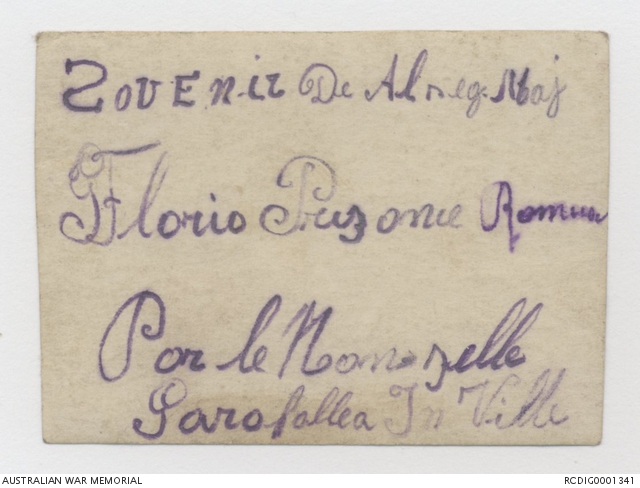 Sovenir De Al reg. Maj
Florio Prizonie Romua
Por le Momozelle
Garofallea In Ville
AUSTRALIAN WAR MEMORIAL RCDIG0001341